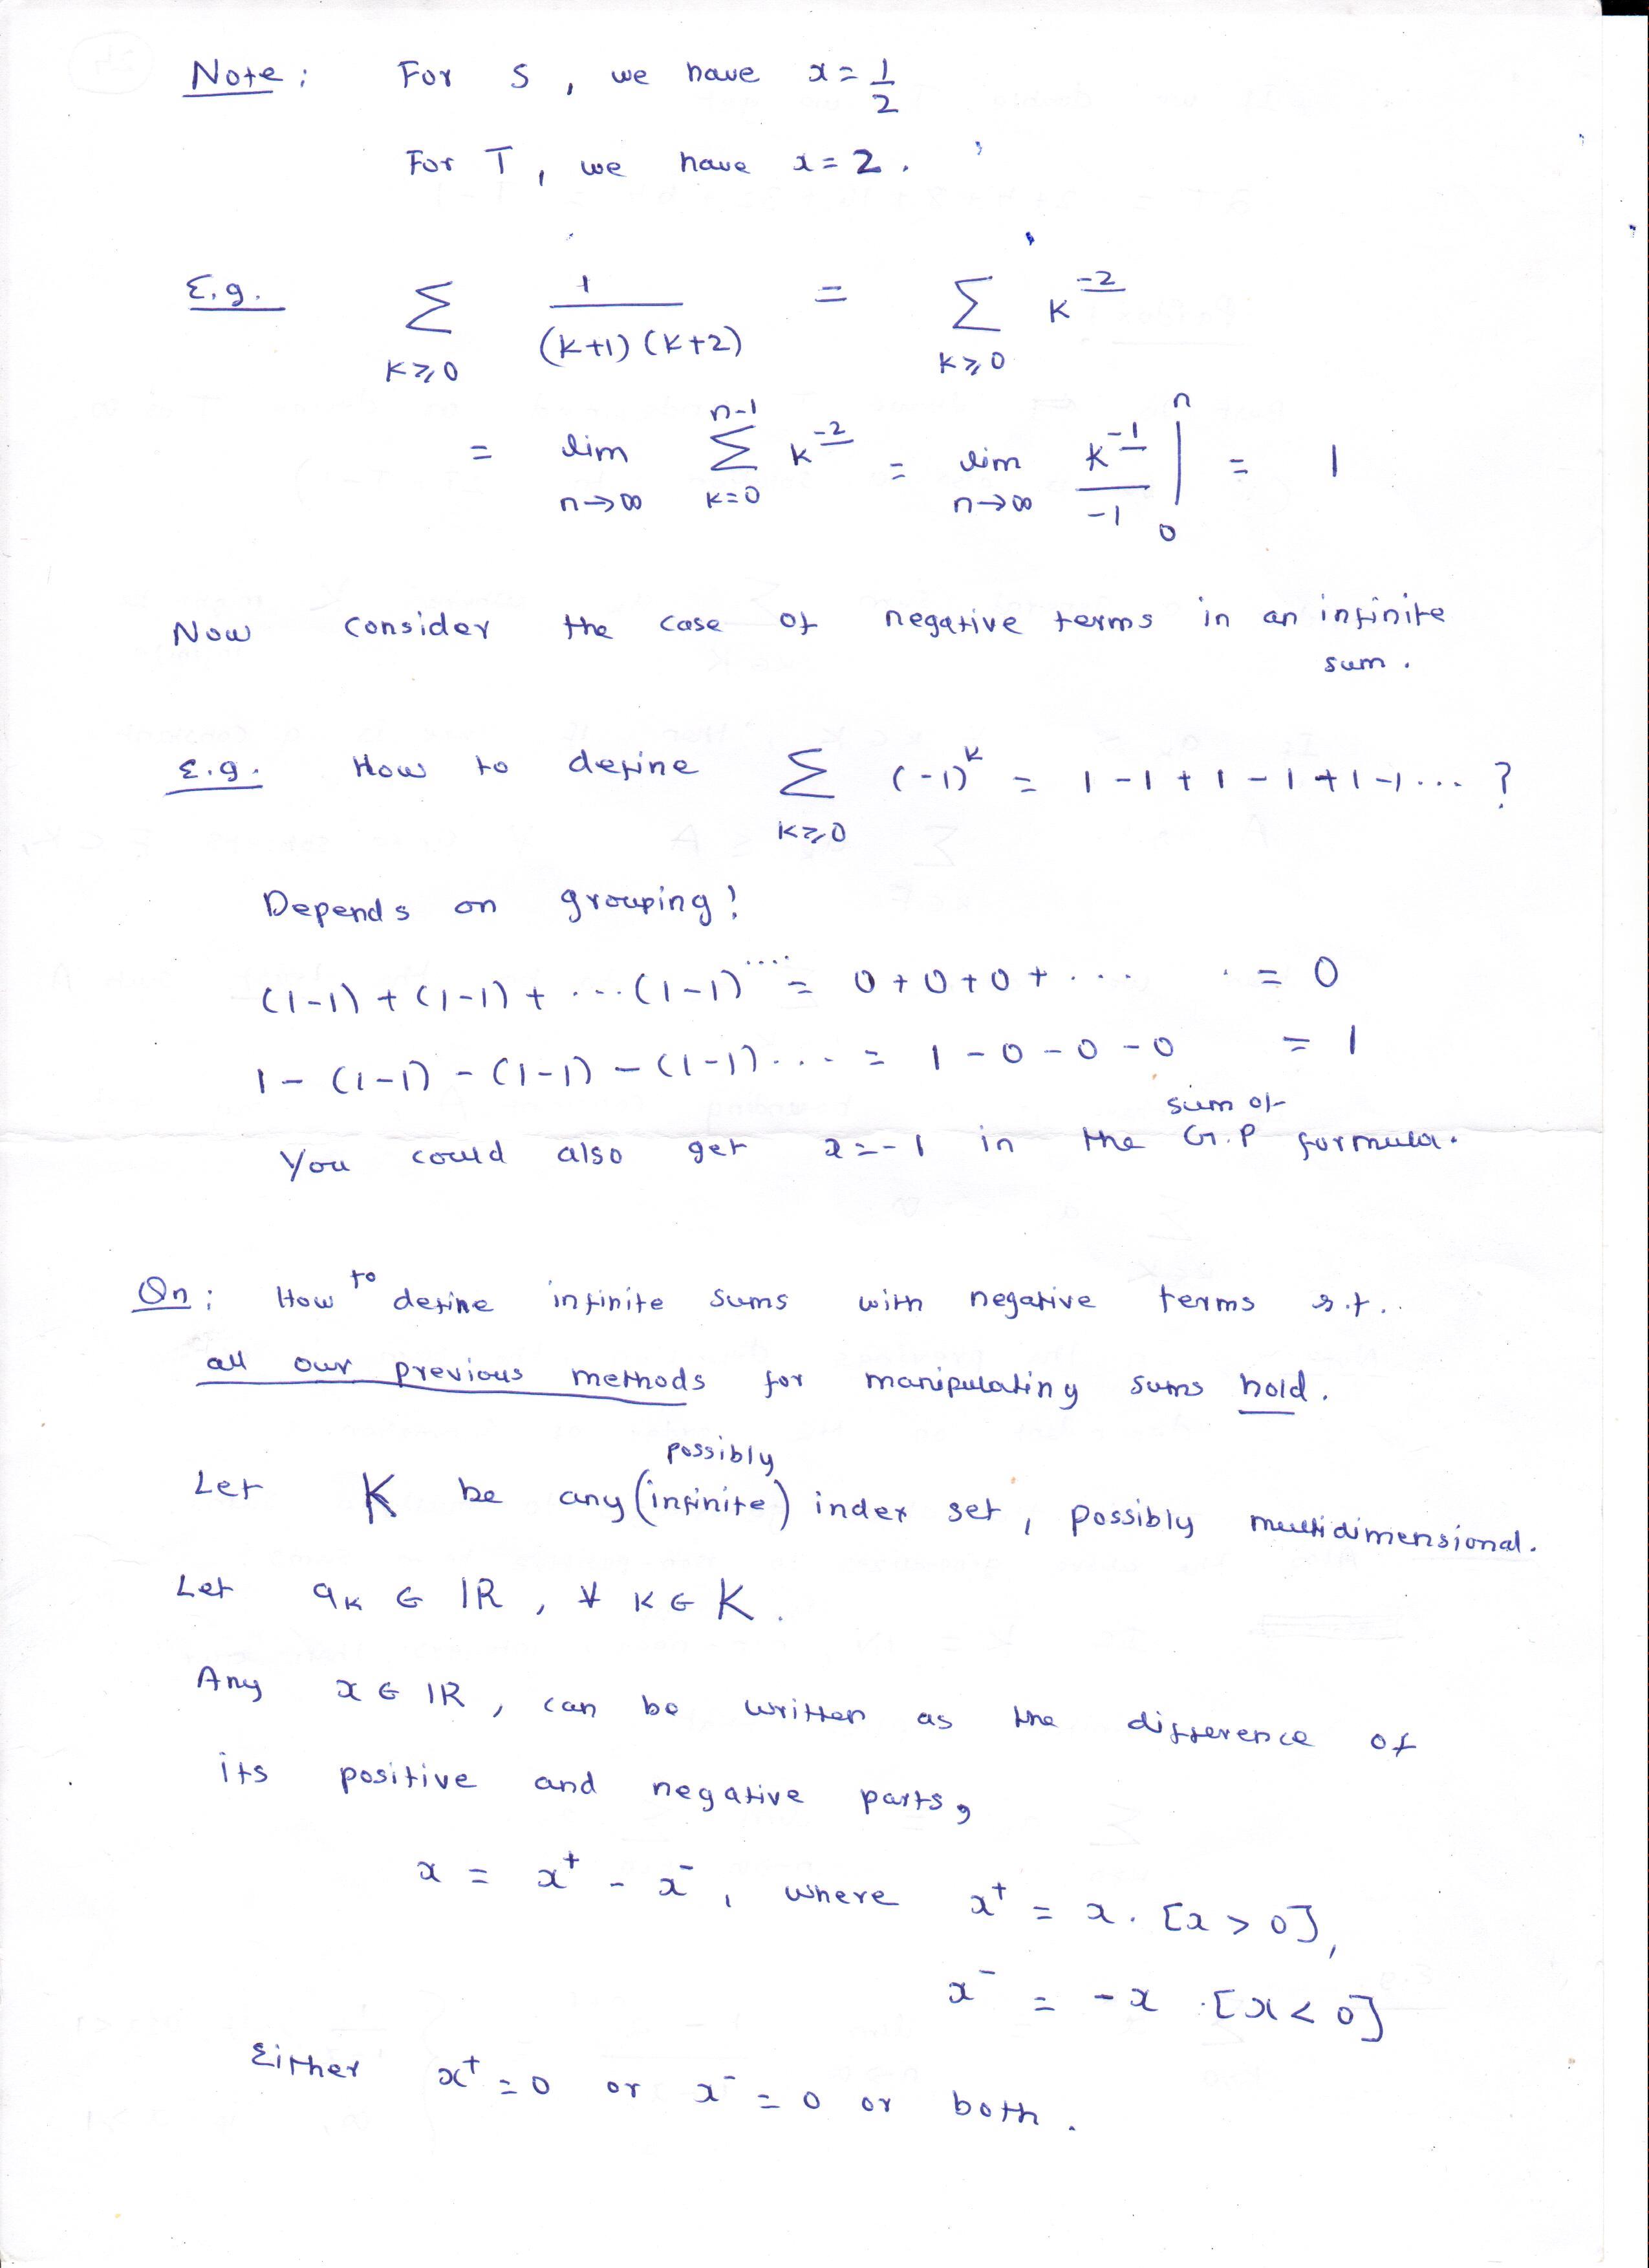 Note: For S, we have x = 1/2
For T, we have x = 2.
E.g. ∑_{K≥0} 1/((K+1)(K+2)) = ∑_{K≥0} K^{\underline{-2}}
= lim_{n→∞} ∑_{K=0}^{n-1} K^{\underline{-2}} = lim_{n→∞} K^{\underline{-1}}/-1 |_0^n = 1
Now consider the case of negative terms in an infinite
sum.
E.g. How to define ∑_{K≥0} (-1)^K = 1-1+1-1+1-1... ?
Depends on grouping!
(1-1)+(1-1)+...(1-1).... = 0+0+0+... . = 0
1-(1-1)-(1-1)-(1-1)... = 1-0-0-0 = 1
You could also get x=-1 in the sum of G.P formula.
Qn: How to define infinite sums with negative terms s.t..
all our previous methods for manipulating sums hold.
Let K be any (possibly infinite) index set, possibly multidimensional.
Let a_K ∈ IR, ∀ K ∈ K.
Any x ∈ IR, can be written as the difference of
its positive and negative parts,
x = x⁺ - x⁻, where x⁺ = x.[x>0],
x⁻ = -x.[x<0]
Either x⁺=0 or x⁻=0 or both.